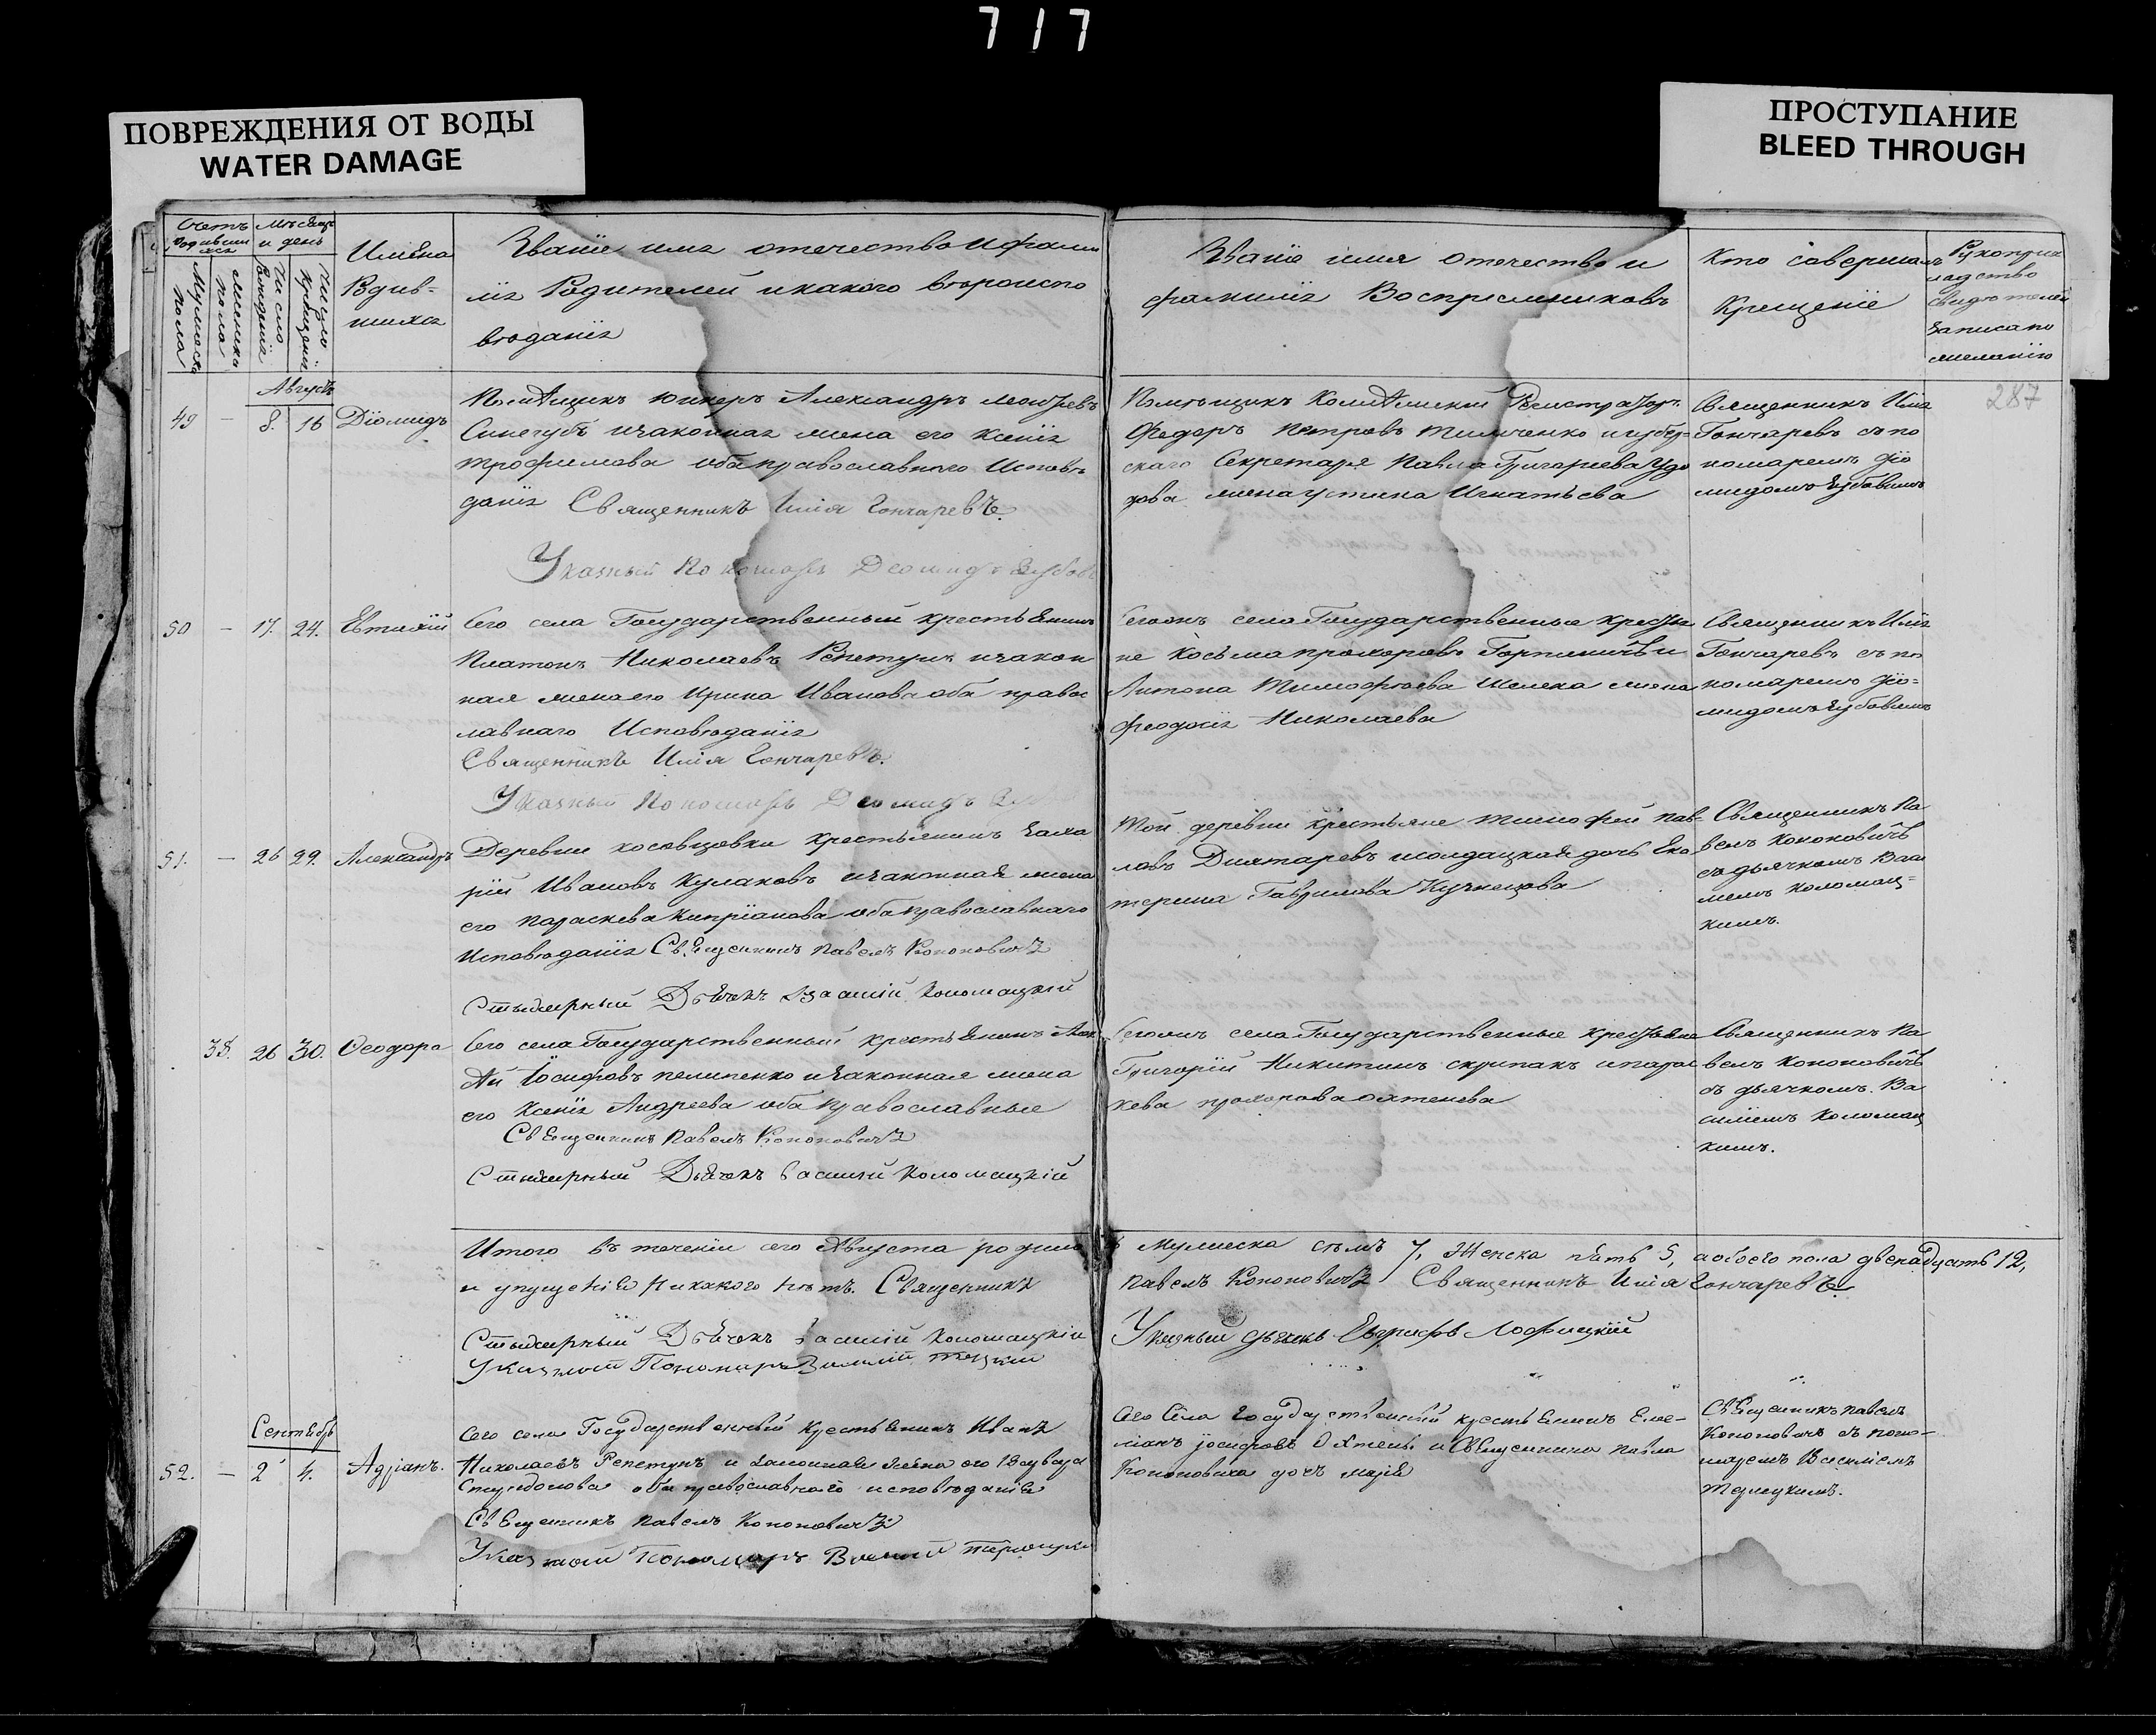 717
ПОВРЕЖДЕНИЯ ОТ ВОДЫ
WATER DAMAGE
ПРОСТУПАНИЕ
BLEED THROUGH
Счетъ
Мѣсяцъ
и день
Мужеска
пола
женска
пола
Число
Рожденія
Число
Крещенія
Имена
Родив-
шихся
Званіе имя отечество и фами
лія Родителей и какого вѣроиспо
вѣданія
Званіе имя отечество и
фамилія Воспріемниковъ
Кто совершалъ
Крещеніе
Рукоприк
ладство
свидѣтелей
записано
желанію
287
Августъ
49 - 8. 16 Діомидъ
Помѣщикъ юнкеръ Александръ
Синегубъ и законная жена его Ксенія
Трофимова оба православнаго Исповѣ
данія Священникъ Илія Гончаревъ.
Указный Пономарь Деомидъ
Помѣщикъ Регистраторъ
Федоръ Петровъ Тимченко и губер-
скаго Секретаря Павла Григорьева
жена устина Игнатьева
Священникъ Илія
Гончаревъ съ по
номаремъ Діо
мидомъ
50 - 17. 24. Евтихій
Сего села Государственный крестьянинъ
Платонъ Николаевъ Репетунъ и закон
ная жена его Ирина Иванова оба правос
лавнаго Исповѣданія
Священникъ Илія Гончаревъ.
Указный Пономарь Деомидъ
села Государственные крестья
не Косьма
Антона Тимофѣева жена
Феодосія Николаева
Священникъ Илія
Гончаревъ съ по
номаремъ Діо-
мидомъ
51. - 26 29. Александръ
Деревни косовцовки крестьянинъ Заха
рій Ивановъ Кулаковъ и законная жена
его параскева Кипріанова оба православнаго
Исповѣданія Священникъ Павелъ Кононовичъ
Стихарный Дьячекъ Василій Коломацкій
Той деревни крестьяне Тимофей пав-
ловъ Дихтаревъ и солдацкая дочь Ека
терина Гаврилова Кузнецова
Священникъ Па
велъ Кононовичъ
съ дьячкомъ Васи
лиемъ Коломац-
кимъ.
38. 26 30. Феодора
Сего села Государственный крестьянинъ
Іосифовъ пелипенко и законная жена
его Ксенія Андреева оба православные
Священникъ Павелъ Кононовичъ
Стихарный Дьячекъ Василій Коломацкій
села Государственные крестьяне
Григорій Никитинъ скрипакъ и парас
кева прохорова
Священникъ Па
велъ Кононовичъ
съ дьячкомъ Ва
силіемъ Коломац
кимъ.
Итого въ теченіи сего Августа родило
съ мужеска семь 7, женска пять 5, а обоего пола двенадцать 12,
и упущенія никакого нѣтъ. Священникъ
Павелъ Кононовичъ Священникъ Илія Гончаревъ
Стихарный Дьячекъ Василій Коломацкій
Указный дьячекъ
Указный Пономарь Василій
Сентябрь
52. - 2 4. Адріанъ.
Сего села Государственный крестьянинъ Иванъ
Николаевъ Репетунъ и законная жена его
Спиридонова оба православнаго исповѣданія
Священникъ Павелъ Кононовичъ
Указный Пономарь Василій
Сего села Государственный крестьянинъ Еме-
ліанъ іосифовъ и Священника Павла
Кононовича дочь марія
Священникъ Павелъ
Кононовичъ съ поно-
маремъ Василіемъ